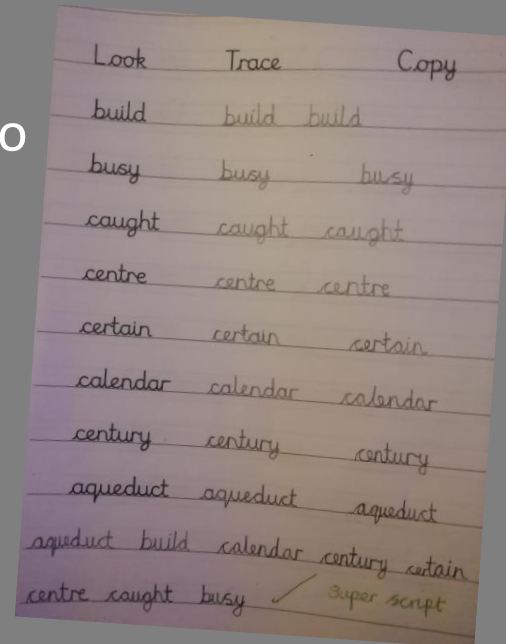 Look Trace Copy
build build build
o
busy busy busy
caught caught caught
centre centre centre
certain certain certain
calendar calendar calendar
century century century
aqueduct aqueduct aqueduct
aqueduct build calendar century certain
centre caught busy ✓ super script